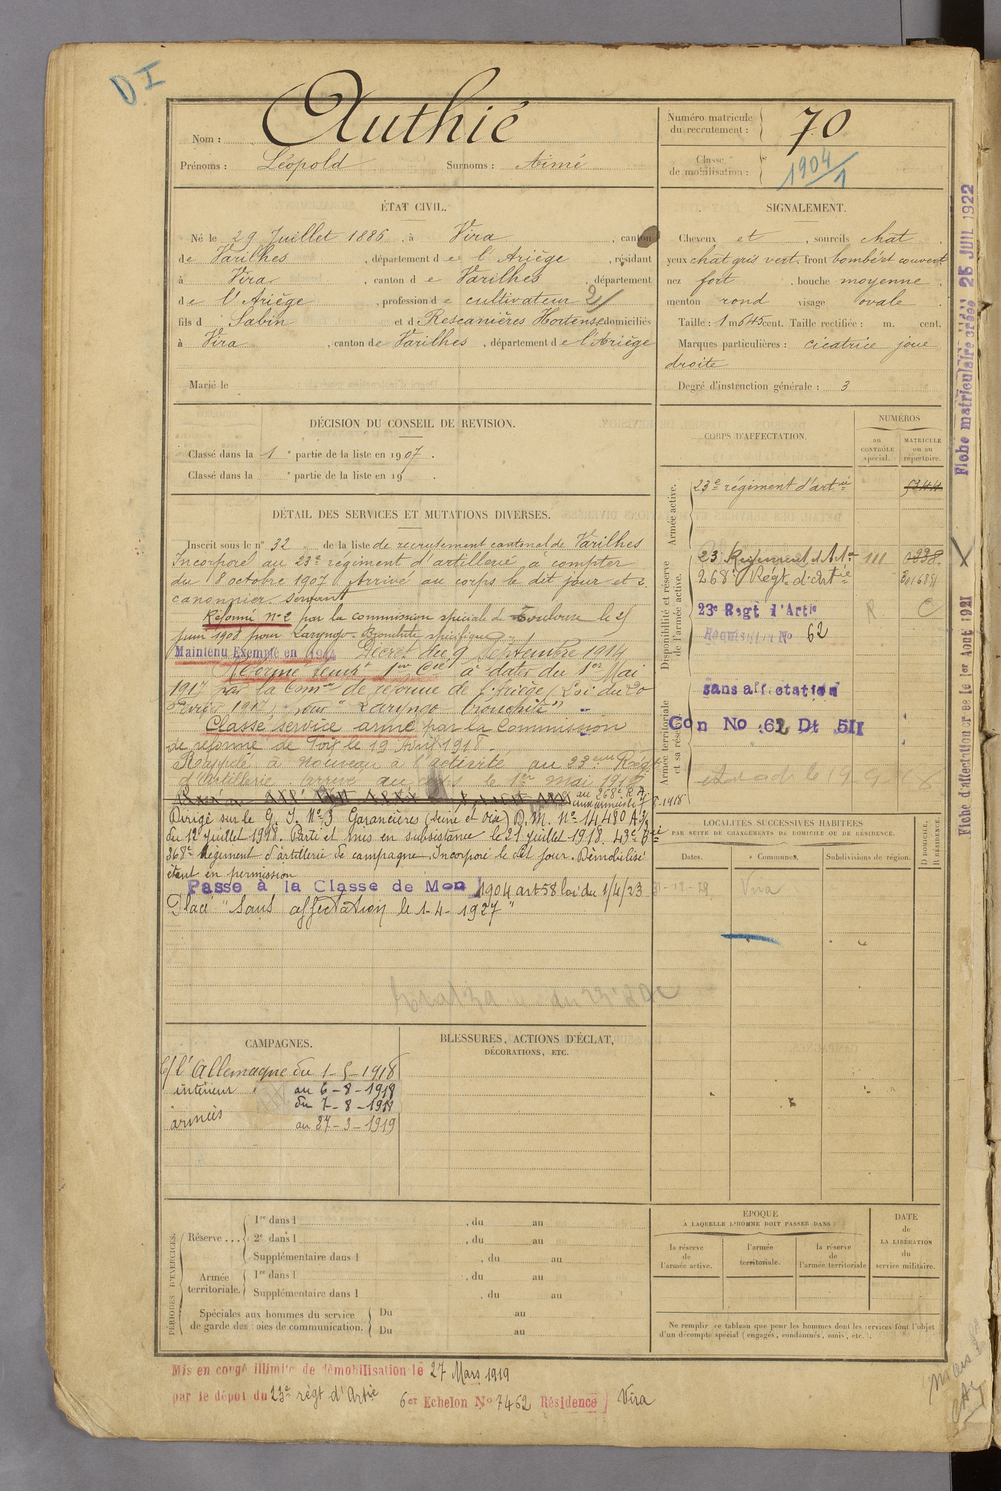 D I
Nom : Authié
Prénoms : Léopold Surnoms : Aimé
Numéro matricule du recrutement : 70
Classe de mobilisation : 1904/1
ÉTAT CIVIL.
Né le 29 Juillet 1886, à Vira, canton
de Varilhes, département de l'Ariège, résidant
à Vira, canton de Varilhes, département
de l'Ariège, profession de cultivateur 2/
fils d Sabin et d Rescanières Hortense domiciliés
à Vira, canton de Varilhes, département de l'Ariège
Marié le
SIGNALEMENT.
Cheveux et, sourcils chat.
yeux chat gris vert, front bombé et couvert
nez fort, bouche moyenne,
menton rond visage ovale
Taille : 1 m 645 cent. Taille rectifiée : m. cent.
Marques particulières : cicatrice joue
droite
Degré d'instruction générale : 3
DÉCISION DU CONSEIL DE REVISION.
Classé dans la 1e partie de la liste en 1907.
Classé dans la e partie de la liste en 19 .
DÉTAIL DES SERVICES ET MUTATIONS DIVERSES.
Inscrit sous le n° 32 de la liste de recrutement cantonal de Varilhes
Incorporé au 23e régiment d'artillerie à compter
du 8 octobre 1907 Arrivé au corps le dit jour et 2
canonnier servant
Réformé n°2 par la commission spéciale de Toulouse le 2/
Juin 1908 pour Laryngo-Bronchite spécifique
Maintenu Exempté en 1914 Décret du 9 Septembre 1914
à dater du 1er Mai
1917 par la Comon de réforme de l'Ariège (Loi du 20
1917) pour "Laryngo bronchite"
Classé service armé par la Commission
de réforme de Foix le 19 Avril 1918.
Rappelé à nouveau à l'activité au 23eme Régt
d'Artillerie arrivé au corps le 1er mai 1918
au 268e R.A.
Dirigé sur le G. I. N°3 Garancières (Seine et Oise) D.M. N° 14480 A
du 12 Juillet 1918. Parti et mis en subsistance le 21 juillet 1918. 43e Bie
268e Régiment d'artillerie de campagne. Incorporé le dit jour. Démobilisé
étant en permission
Passé à la Classe de Mon 1904 art 58 loi du 1/4/23
Placé "Sans affectation le 1-4-1927"
CORPS D'AFFECTATION.
NUMÉROS
au CONTRÔLE spécial.
MATRICULE ou au répertoire.
Armée active.
23e régiment d'artie
Disponibilité et réserve de l'armée active.
23 Régiment d'Artie 111
268e Régt d'artie
23e Regt d'Artie R C
Réquisition No 62
Armée territoriale et sa réserve
sans affectation
Con No 62 Dt 511
LOCALITÉS SUCCESSIVES HABITÉES
PAR SUITE DE CHANGEMENTS DE DOMICILE OU DE RÉSIDENCE.
Dates. Communes. Subdivisions de région.
D DOMICILE, R RÉSIDENCE.
Vira
CAMPAGNES.
c/ l'Allemagne du 1-5-1918
intérieur au 6-8-1918
armées du 7-8-1918
au 27-3-1919
BLESSURES, ACTIONS D'ÉCLAT,
DÉCORATIONS, ETC.
PÉRIODES D'EXERCICES.
Réserve ...
1re dans l , du au
2e dans l , du au
Supplémentaire dans l , du au
Armée territoriale.
1re dans l , du au
Supplémentaire dans l , du au
Spéciales aux hommes du service
de garde des voies de communication.
Du au
Du au
EPOQUE
À LAQUELLE L'HOMME DOIT PASSER DANS :
la réserve de l'armée active.
l'armée territoriale.
la réserve de l'armée territoriale
DATE de LA LIBÉRATION du service militaire.
Ne remplir ce tableau que pour les hommes dont les services font l'objet
d'un décompte spécial (engagés, condamnés, omis, etc.).
Mis en congé illimité de démobilisation le 27 Mars 1919
par le dépôt du 23e régt d'Artie 6er Echelon No 7462 Résidence Vira
Fiche matriculaire créée 25 JUIL 1922
Fiche d'affectation créée le 1er Aout 1921